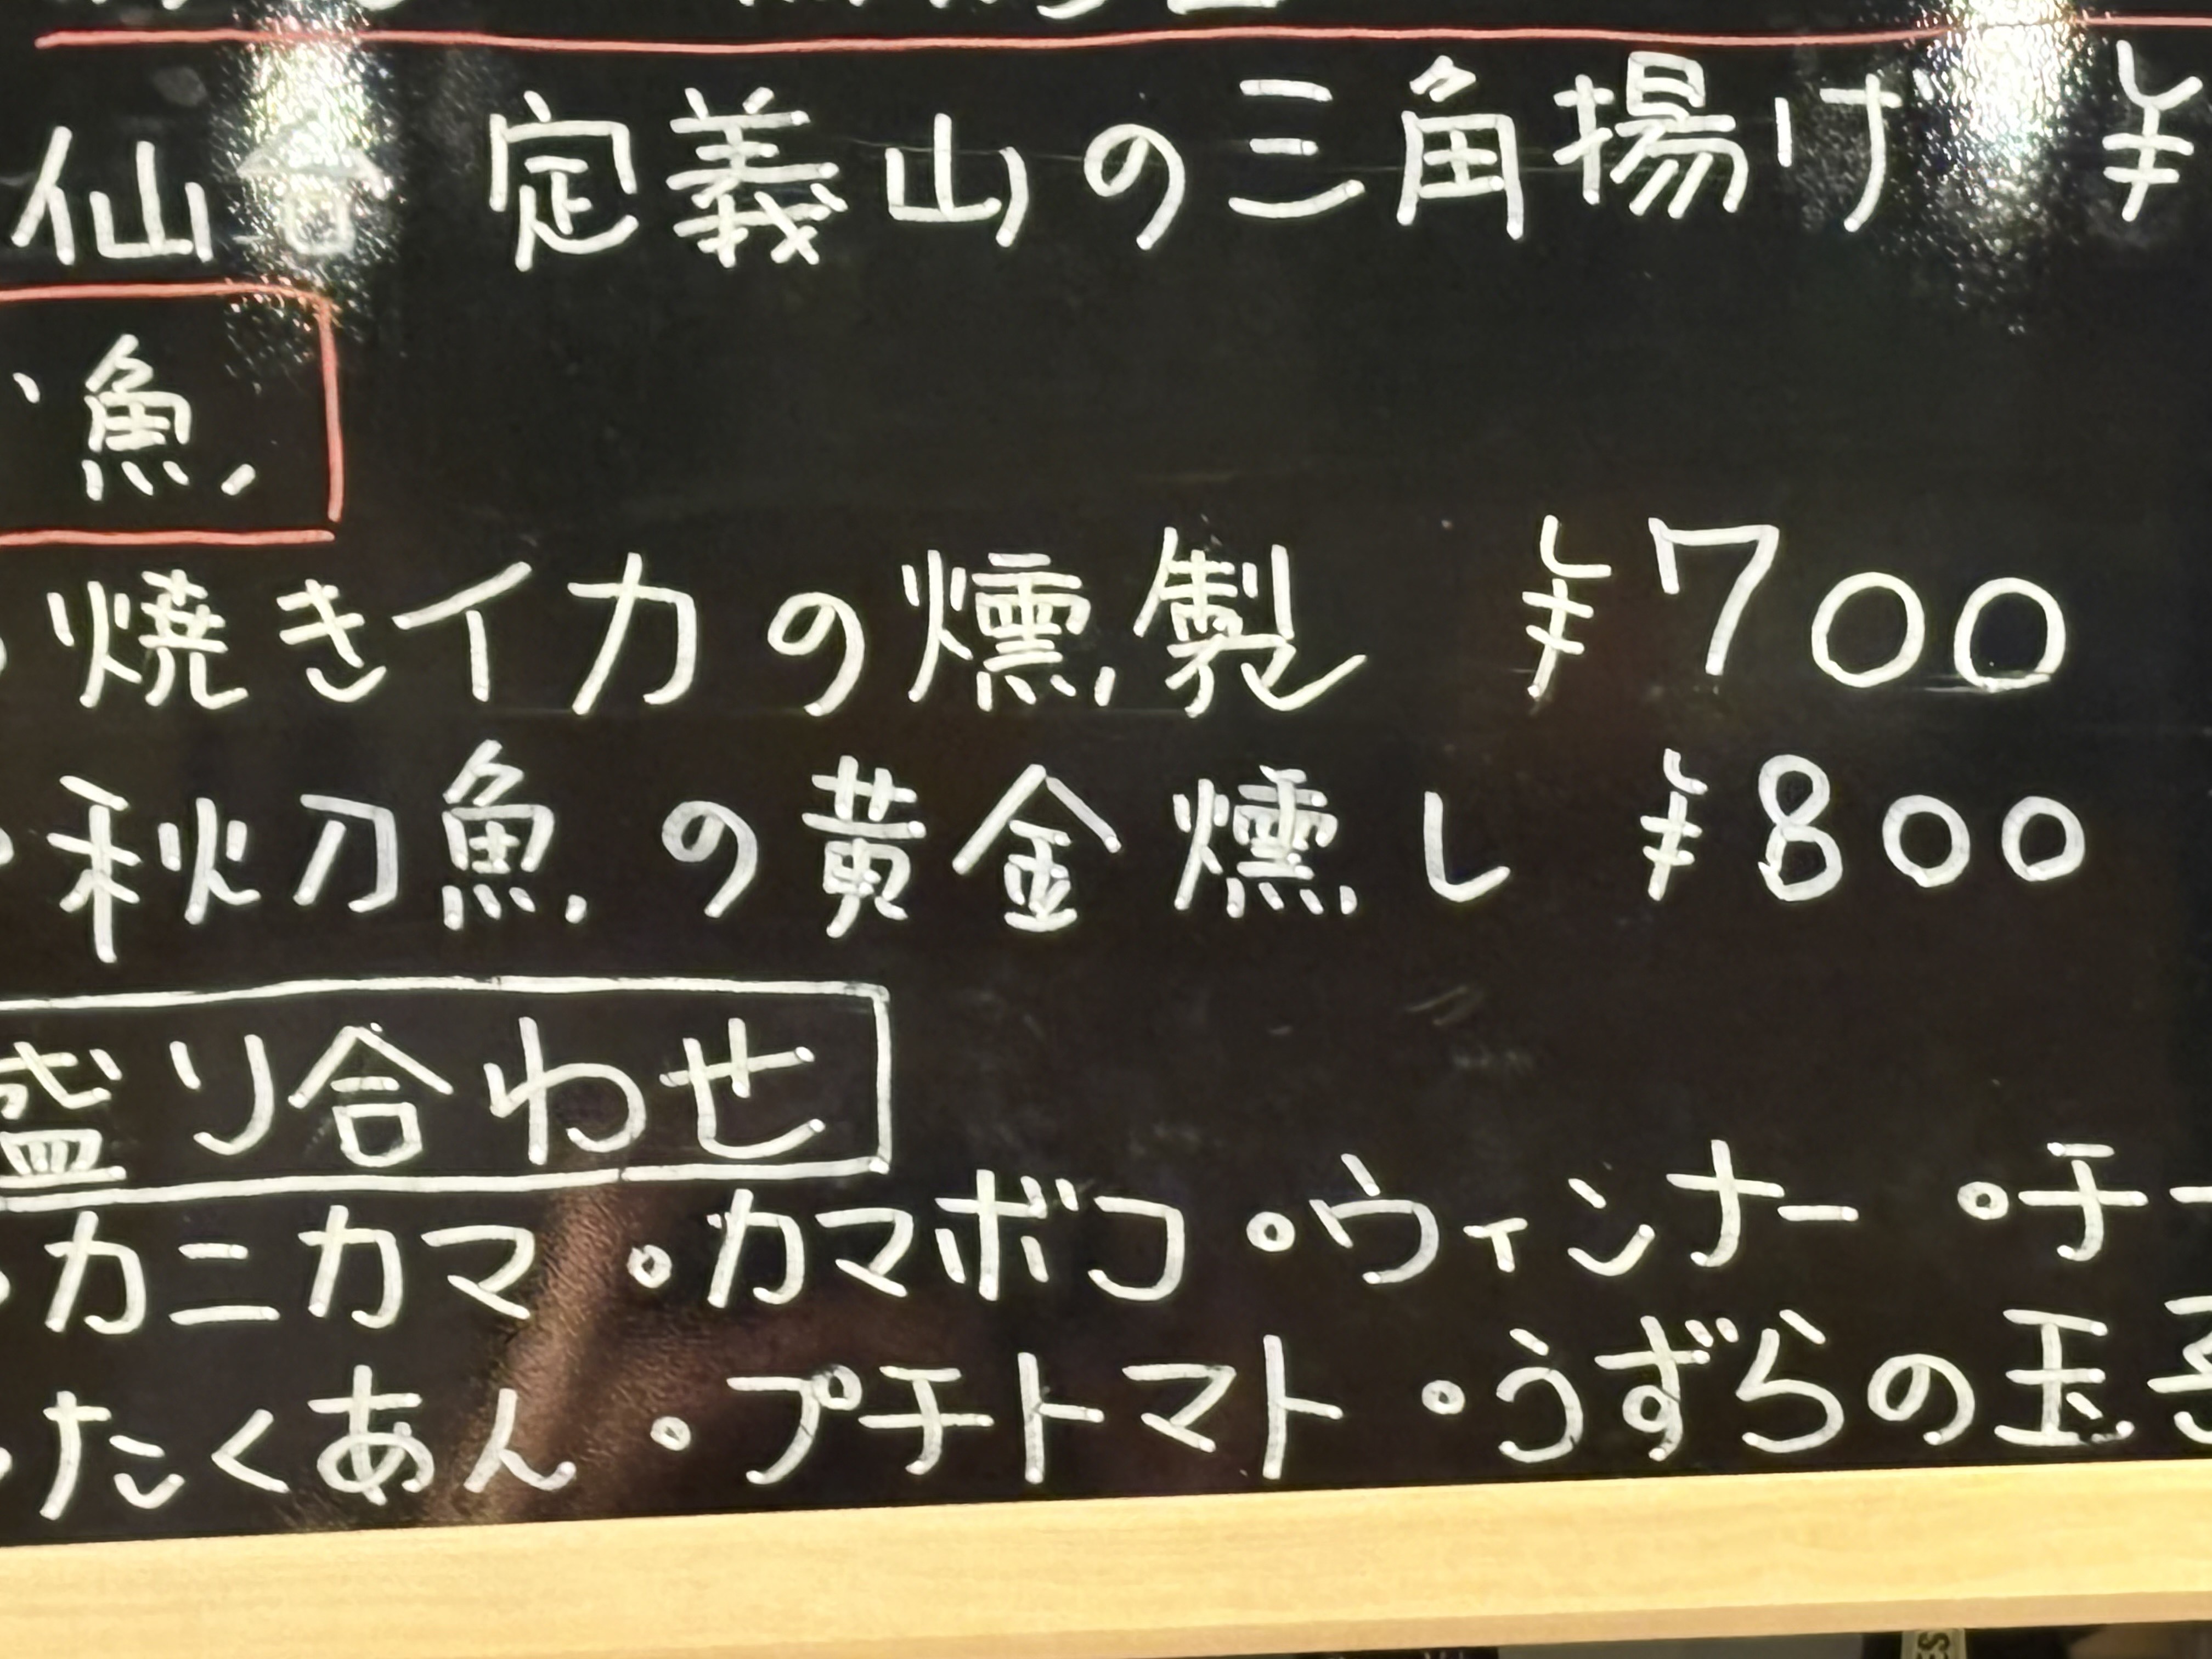 仙台 定義山の三角揚げ ¥
魚
焼きイカの燻製 ¥700
秋刀魚の黄金燻し ¥800
盛り合わせ
・カニカマ ・カマボコ ・ウィンナー ・チー
・たくあん ・プチトマト ・うずらの玉子